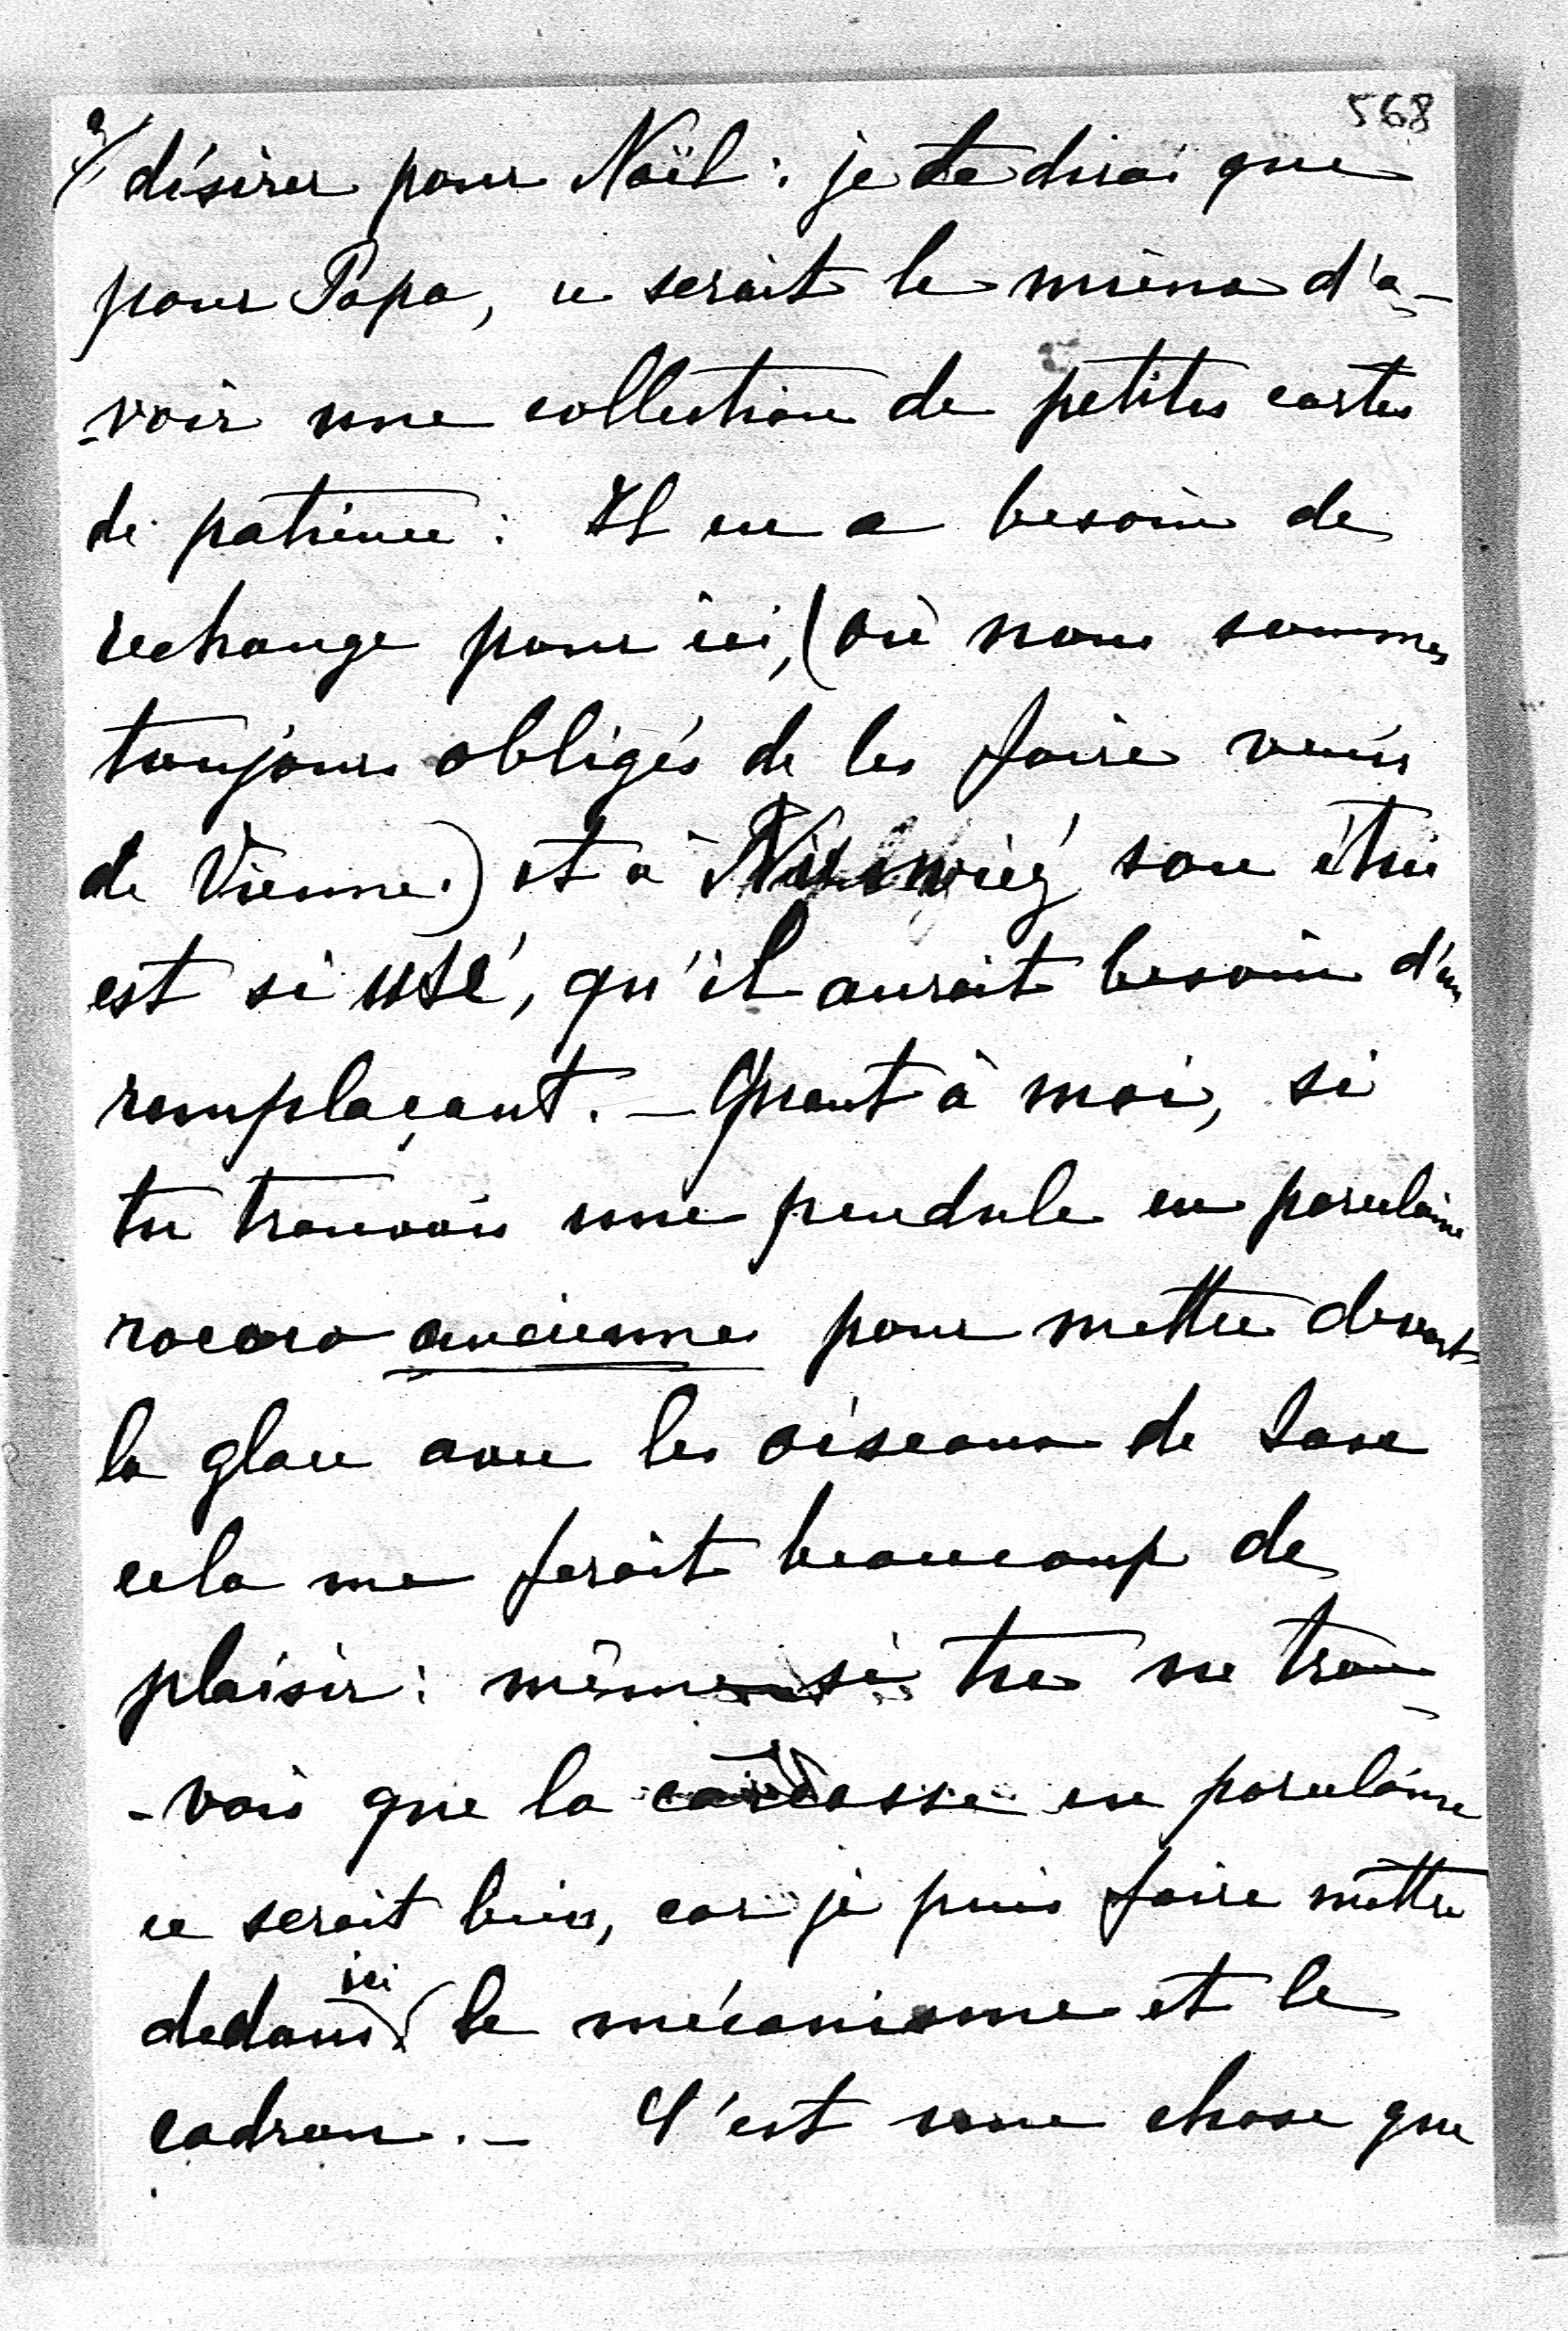 568
2/ désirer pour Noël : je te dirai que
pour Papa, ce serait le mieux d'a-
-voir une collection de petites cartes
de patience : Il en a besoin de
rechange pour ici, (où nous sommes
toujours obligés de les faire venir
de Vienne.) et à Nieświéż son étui
est si usé, qu'il aurait besoin d'un
remplaçant. — Quant à moi, si
tu trouvais une pendule en porcelaine
rococo ancienne pour mettre devant
la glace avec les oiseaux de Saxe
cela me ferait beaucoup de
plaisir : même si tu ne trou-
-vais que la carcasse en porcelaine
ce serait bien, car je puis faire mettre
dedans ici le mécanisme et le
cadran. — C'est une chose que